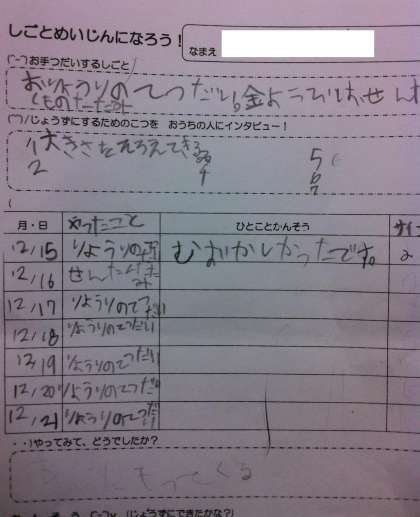 しごとめいじんになろう！
なまえ
お手つだいするしごと
おりょうりのてつだい。金ようびはせんた
くものたたみ
じょうずにするためのこつを おうちの人にインタビュー！
1大きさをそろえてきる
2
4
5
6
7
月・日 やったこと ひとことかんそう サイ
12/15 りょうりの むずかしかったです。
12/16 せんたく
12/17 りょうりのてつだい
12/18 りょうりのてつだい
12/19 りょうりのてつだい
12/20 りょうりのてつだい
12/21 りょうりのてつだい
やってみて、どうでしたか？
つくる
(じょうずにできたかな？)